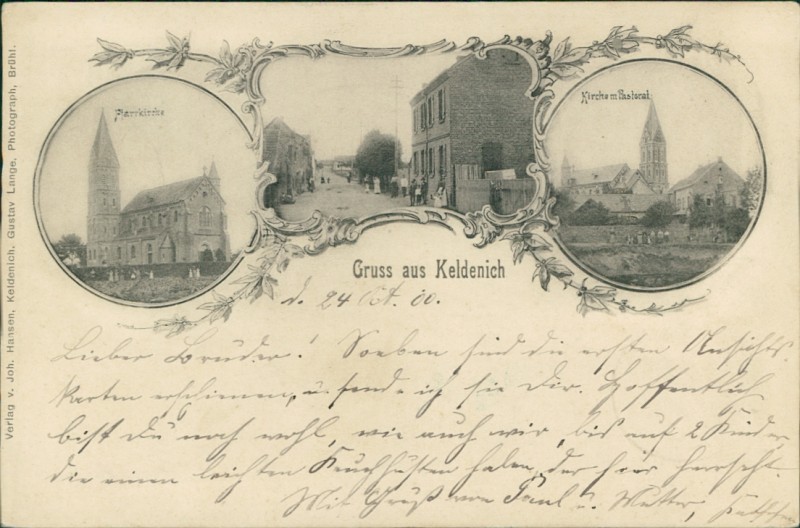 Pfarrkirche
Kirche m Pastorat
Gruss aus Keldenich
d. 24 Oct. 00.
Lieber Bruder! Soeben sind die ersten Ansichts
karten erschienen, u. sende ich sie Dir. Hoffentlich
bist Du noch wohl, wie auch wir, bis auf 2 Kinder
die einen leichten Keuchhusten haben, der hier herrscht.
Mit Gruß von Paul u. Mutter,
Verlag v. Joh. Hansen, Keldenich. Gustav Lange, Photograph, Brühl.